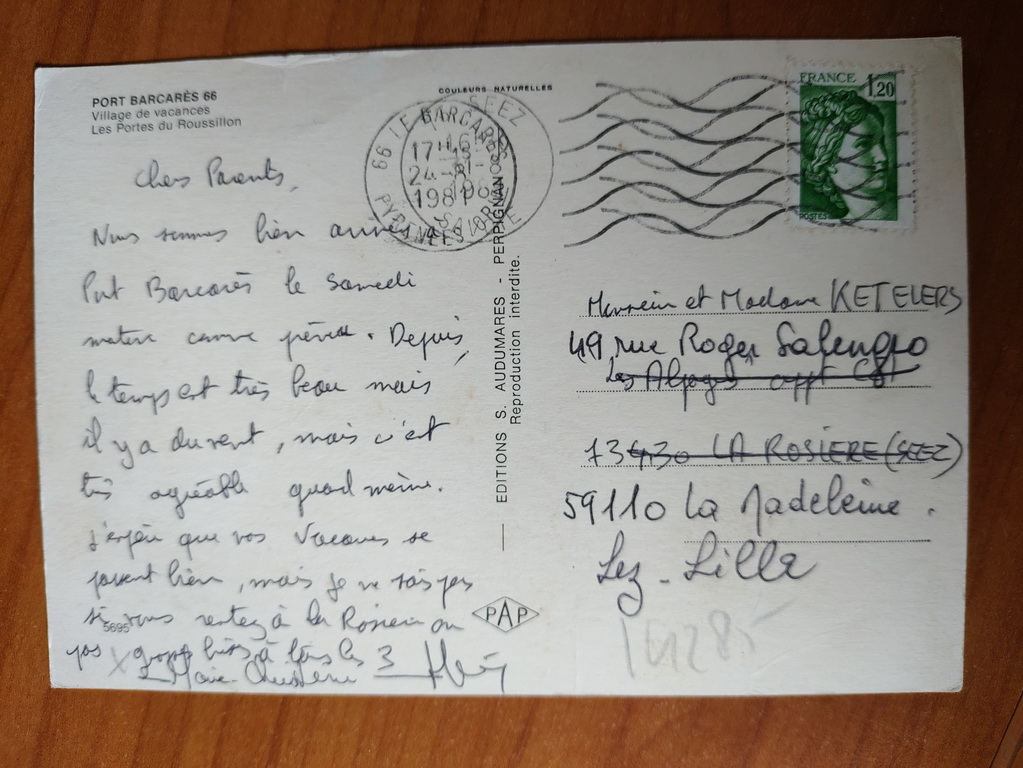 PORT BARCARÈS 66
Village de vacances
Les Portes du Roussillon
COULEURS NATURELLES
66 LE BARCARES
SEEZ
17H
24-
1981
PYRENEES OR
SAVOIE
FRANCE 1,20
POSTES
Chers Parents,
Nous sommes bien arrivés à
Port Barcarès le Samedi
matin comme prévu. Depuis,
le temps est très beau mais
il y a du vent, mais c'est
très agréable quand même.
J'espère que vos vacances se
passent bien, mais je ne sais pas
si vous restez à la Rosière ou
pas
bises à tous les 3
Marie Christine
5695
EDITIONS S. AUDUMARES - PERPIGNAN
Reproduction interdite.
PAP
Monsieur et Madame KETELERS
49 rue Roger Salengro
Les appt
73430 LA ROSIERE (SEEZ)
59110 La Madeleine.
Lez-Lille